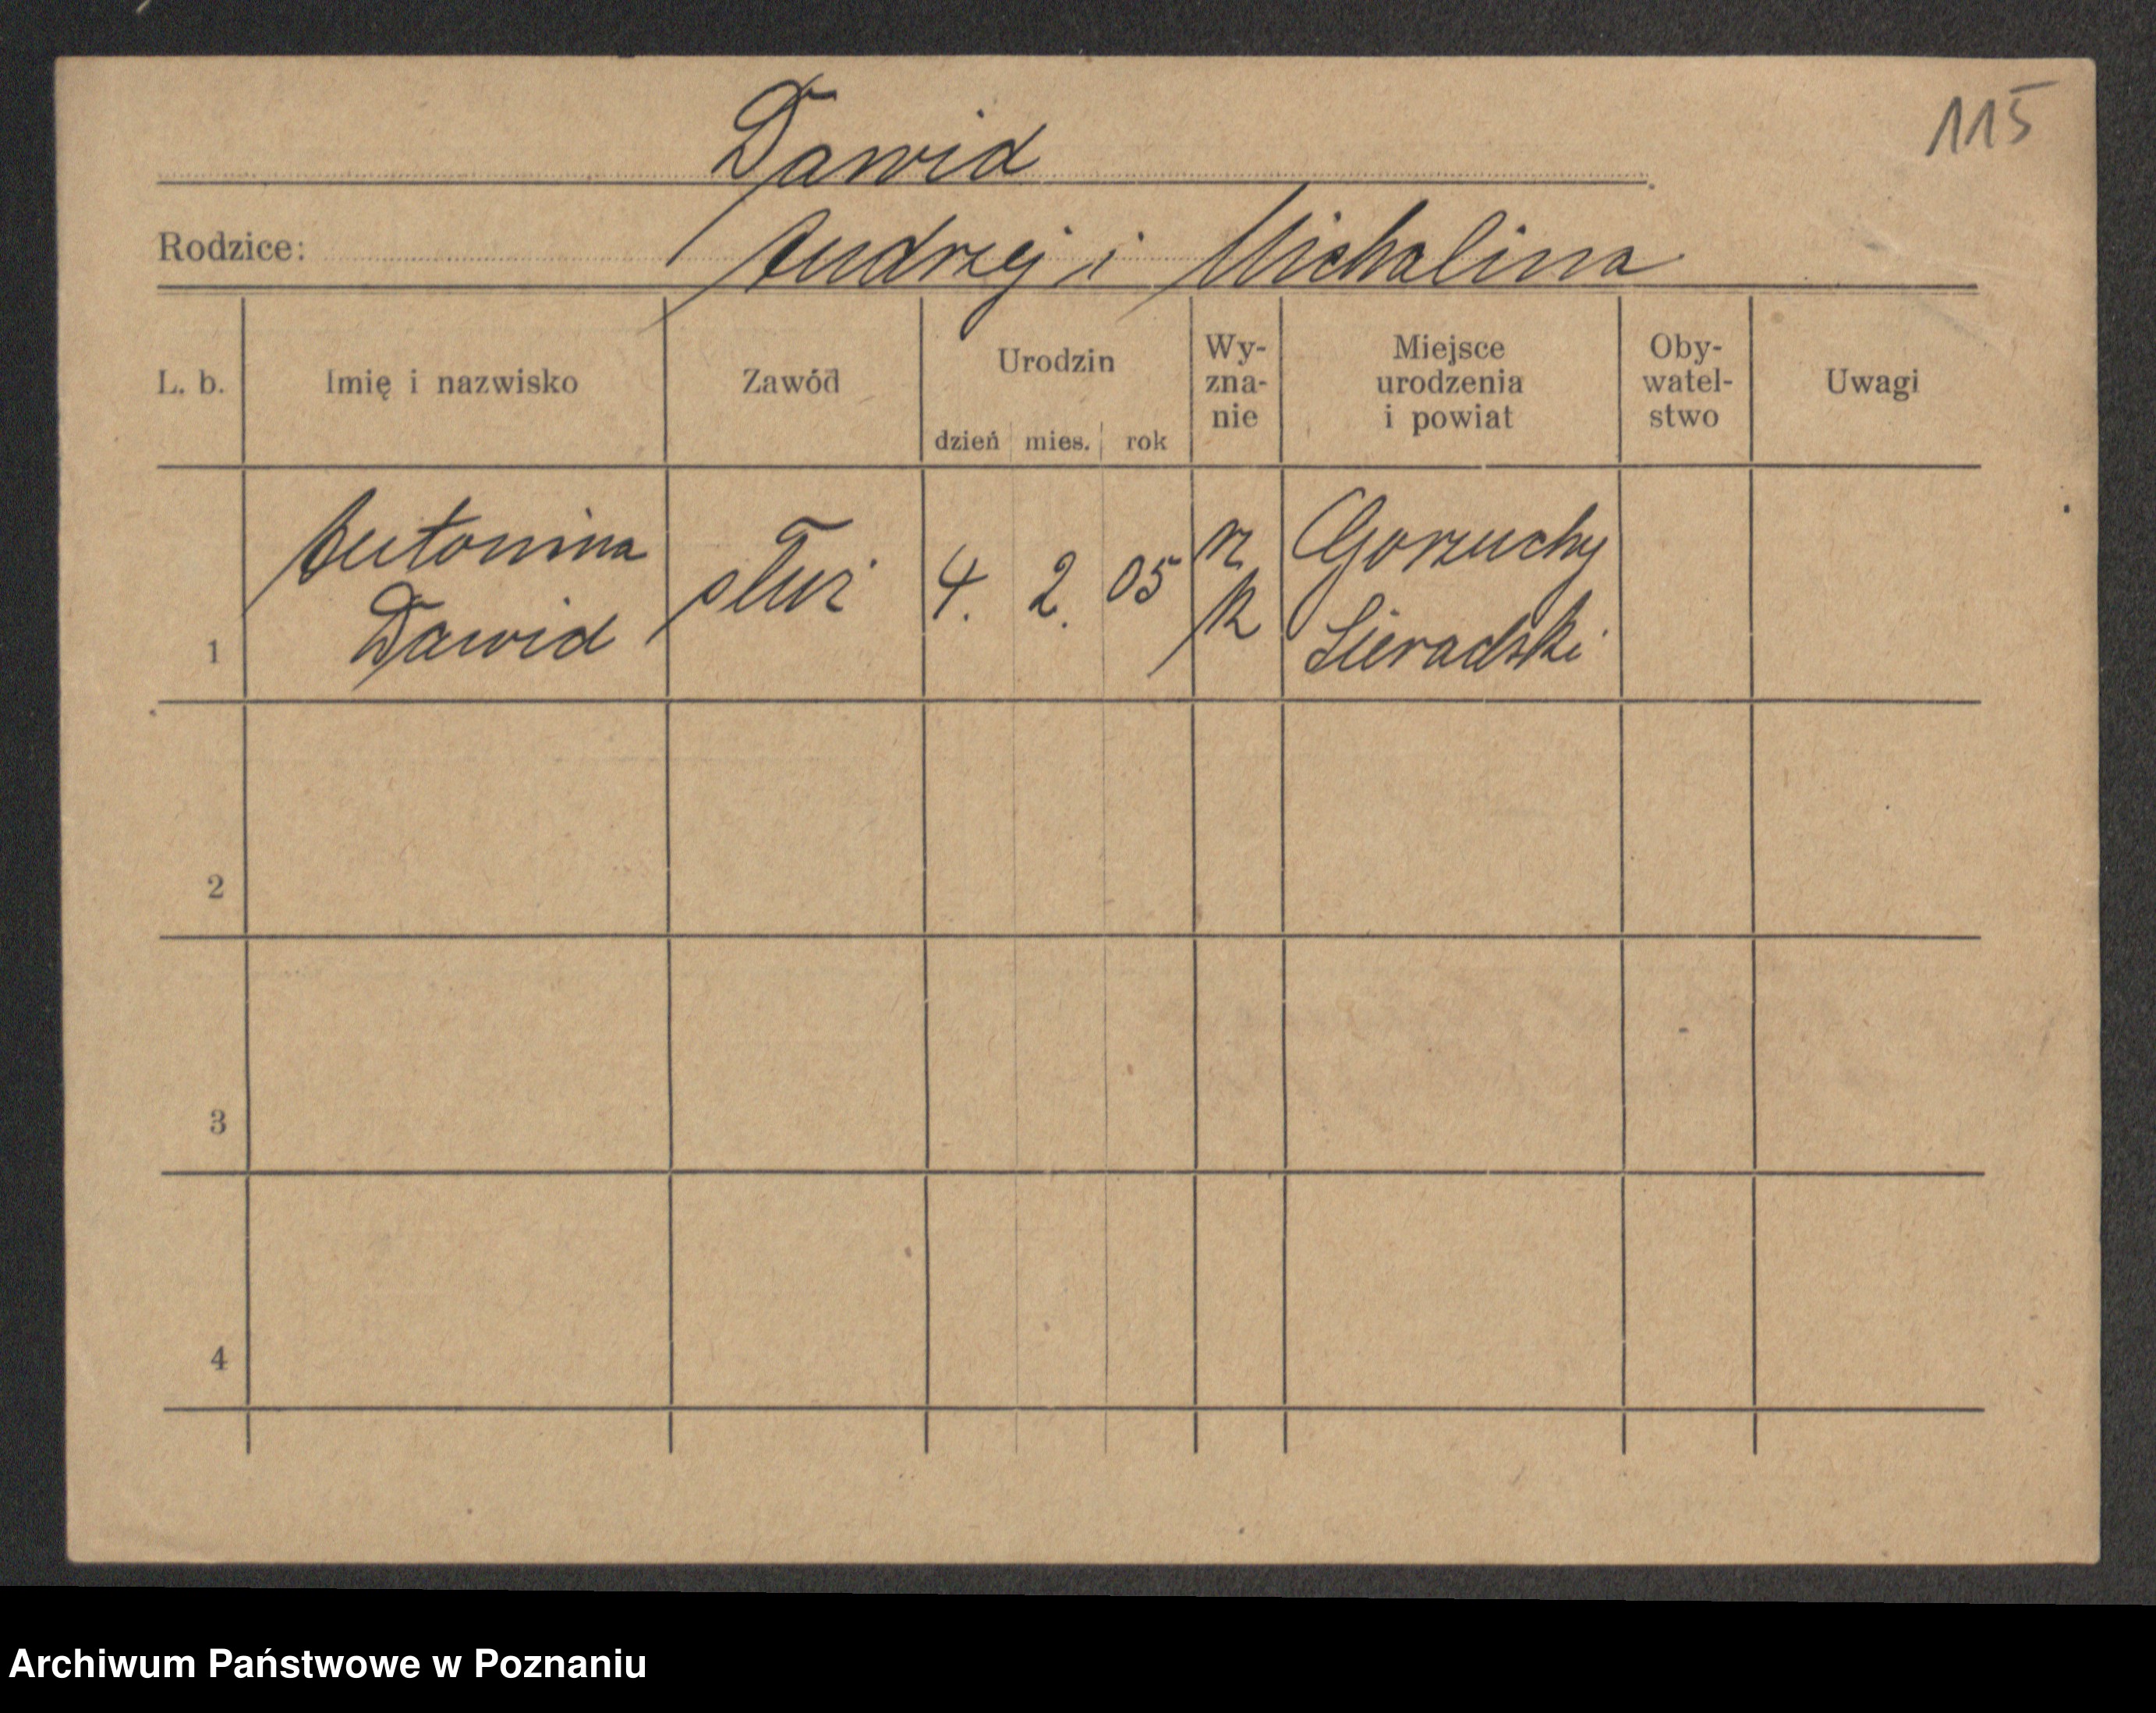 115
Dawid
Rodzice: Andrzej i Michalina
L. b. Imię i nazwisko Zawód Urodzin dzień mies. rok Wy-zna-nie Miejsce urodzenia i powiat Oby-watel-stwo Uwagi
1 Antonina Dawid służ 4. 2. 05 rz k Gorzuchy Sieradzki
2
3
4
Archiwum Państwowe w Poznaniu